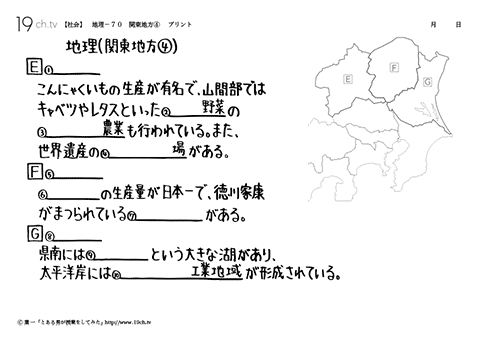 19ch.tv 【社会】 地理－７０ 関東地方④ プリント 月 日
地理(関東地方④)
E ①
こんにゃくいもの生産が有名で、山間部では
キャベツやレタスといった② 野菜の
③ 農業も行われている。また、
世界遺産の④ 場がある。
F ⑤
⑥ の生産量が日本一で、徳川家康
がまつられている⑦ がある。
G ⑧
県南には⑨ という大きな湖があり、
太平洋岸には⑩ 工業地域が形成されている。
E
F
G
Ⓒ 葉一「とある男が授業をしてみた」http://www.19ch.tv